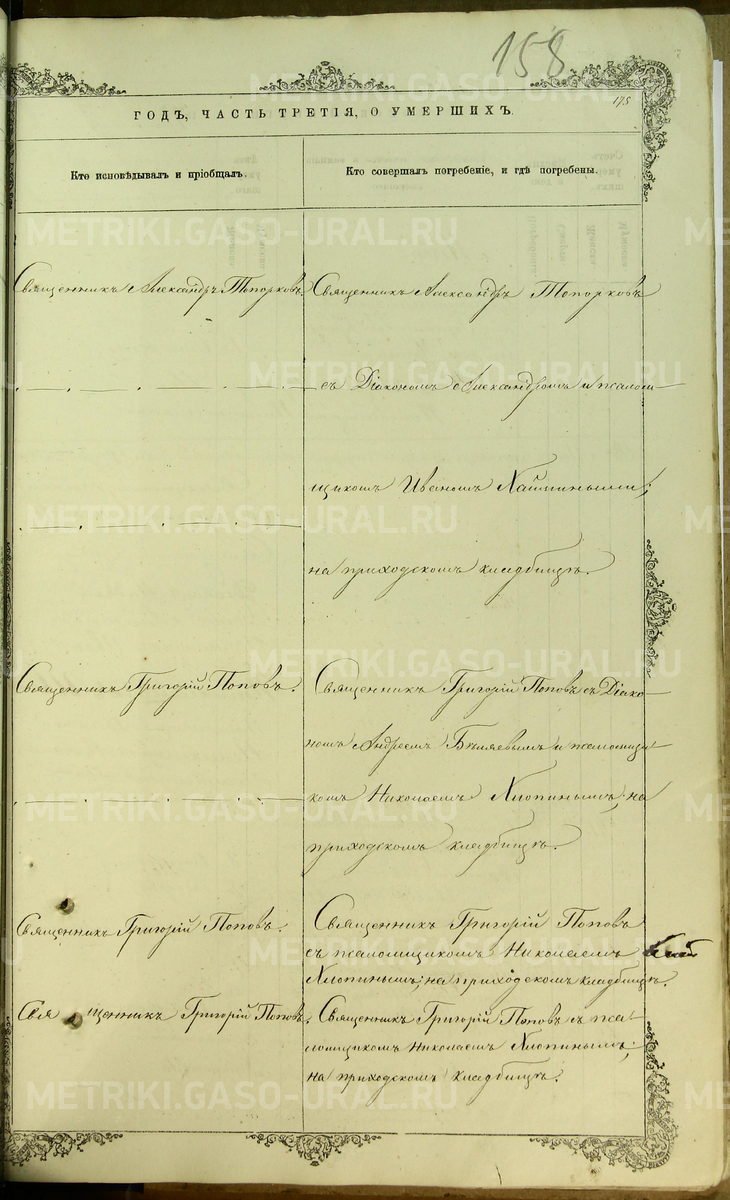 158
175
ГОДЪ, ЧАСТЬ ТРЕТІЯ, О УМЕРШИХЪ.
Кто исповѣдывалъ и пріобщалъ.
Кто совершалъ погребеніе, и гдѣ погребены.
Священникъ Александръ Топорковъ.
Священникъ Александръ Топорковъ
съ Діакономъ Александромъ и псалом-
щикомъ Иваномъ
на приходскомъ кладбищѣ.
Священникъ Григорій Поповъ.
Священникъ Григорій Поповъ съ Діако-
номъ Андреемъ Бѣляевымъ и псаломщи-
комъ Николаемъ Хлопинымъ; на
приходскомъ кладбищѣ.
Священникъ Григорій Поповъ.
Священникъ Григорій Поповъ
съ псаломщикомъ Николаемъ
Хлопинымъ; на приходскомъ кладбищѣ.
Священникъ Григорій Поповъ.
Священникъ Григорій Поповъ съ пса-
ломщикомъ Николаемъ Хлопинымъ;
на приходскомъ кладбищѣ.
METRIKI.GASO-URAL.RU